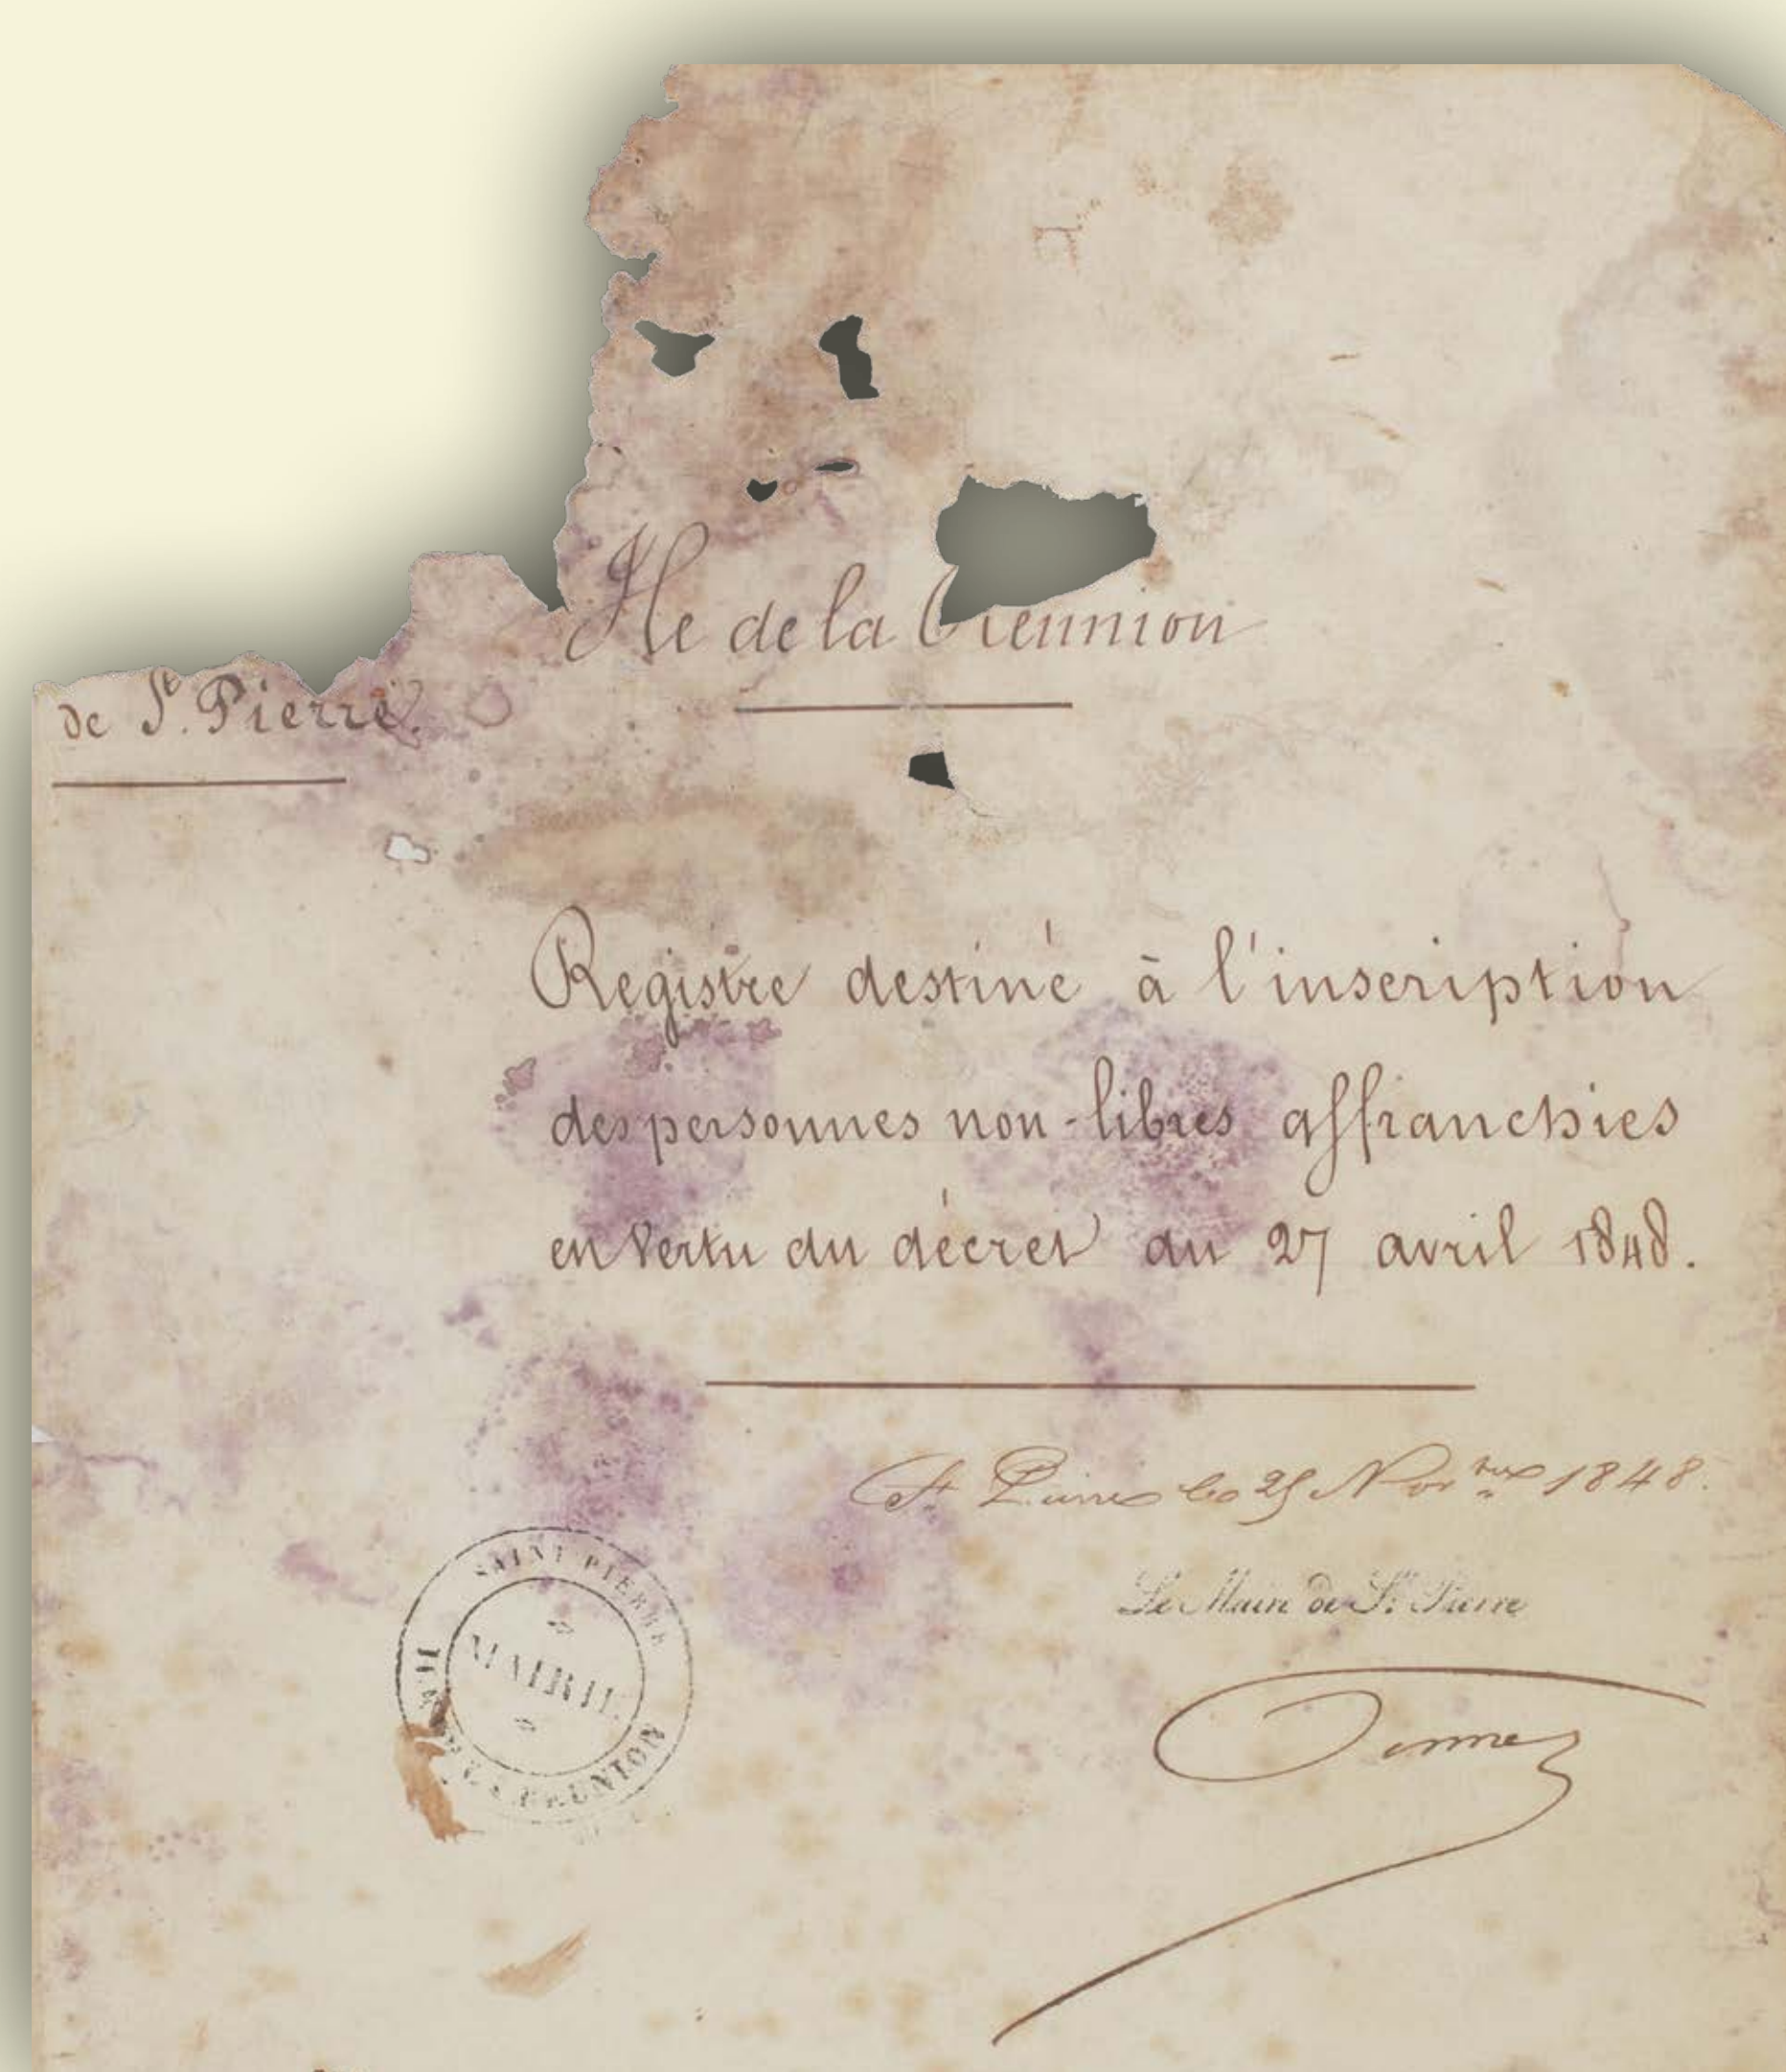 Ile de la Réunion
de St. Pierre.
Registre destiné à l'inscription
des personnes non-libres affranchies
en vertu du décret du 27 avril 1848.
St Pierre le 25 Nov.bre 1848.
Le Maire de St. Pierre
SAINT PIERRE
MAIRIE
REUNION